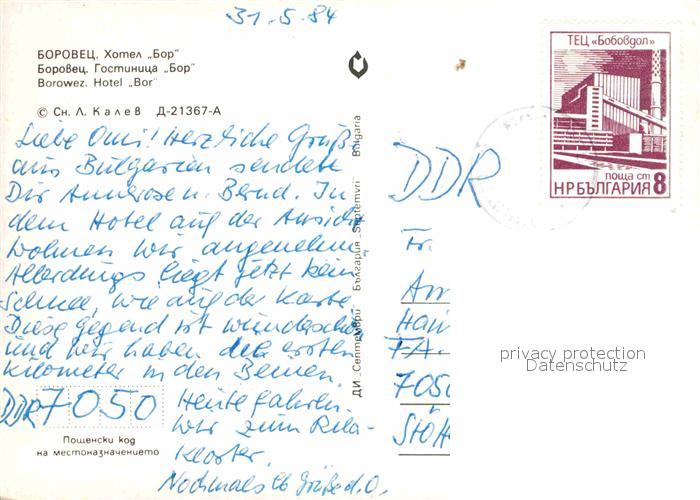 31.5.84
БОРОВЕЦ. Хотел „Бор"
Боровец. Гостиница „Бор"
Borowez. Hotel „Bor"
© Сн. Л. Калев Д-21367-А
Liebe Omi! Herzliche Grüße
aus Bulgarien senden
Dir Annerose u. Bernd. In
dem Hotel auf der Ansicht
wohnen wir angenehm.
Allerdings liegt jetzt kein
Schnee, wie auf der Karte.
Diese Gegend ist wunderschön
und wir haben die ersten
Kilometer in den Beinen.
Heute fahren
wir zum Rila-
Kloster.
Nochmals lb Grüße d. O.
DDR 7050
Пощенски код
на местоназначението
ДИ „Септември" България „Septemvri" Bulgaria
ТЕЦ «Бобовдол»
поща ст
НРБЪЛГАРИЯ 8
DDR
Fr.
7050
privacy protection
Datenschutz